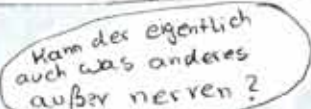 Kann der eigentlich
auch was anderes
außer nerven?